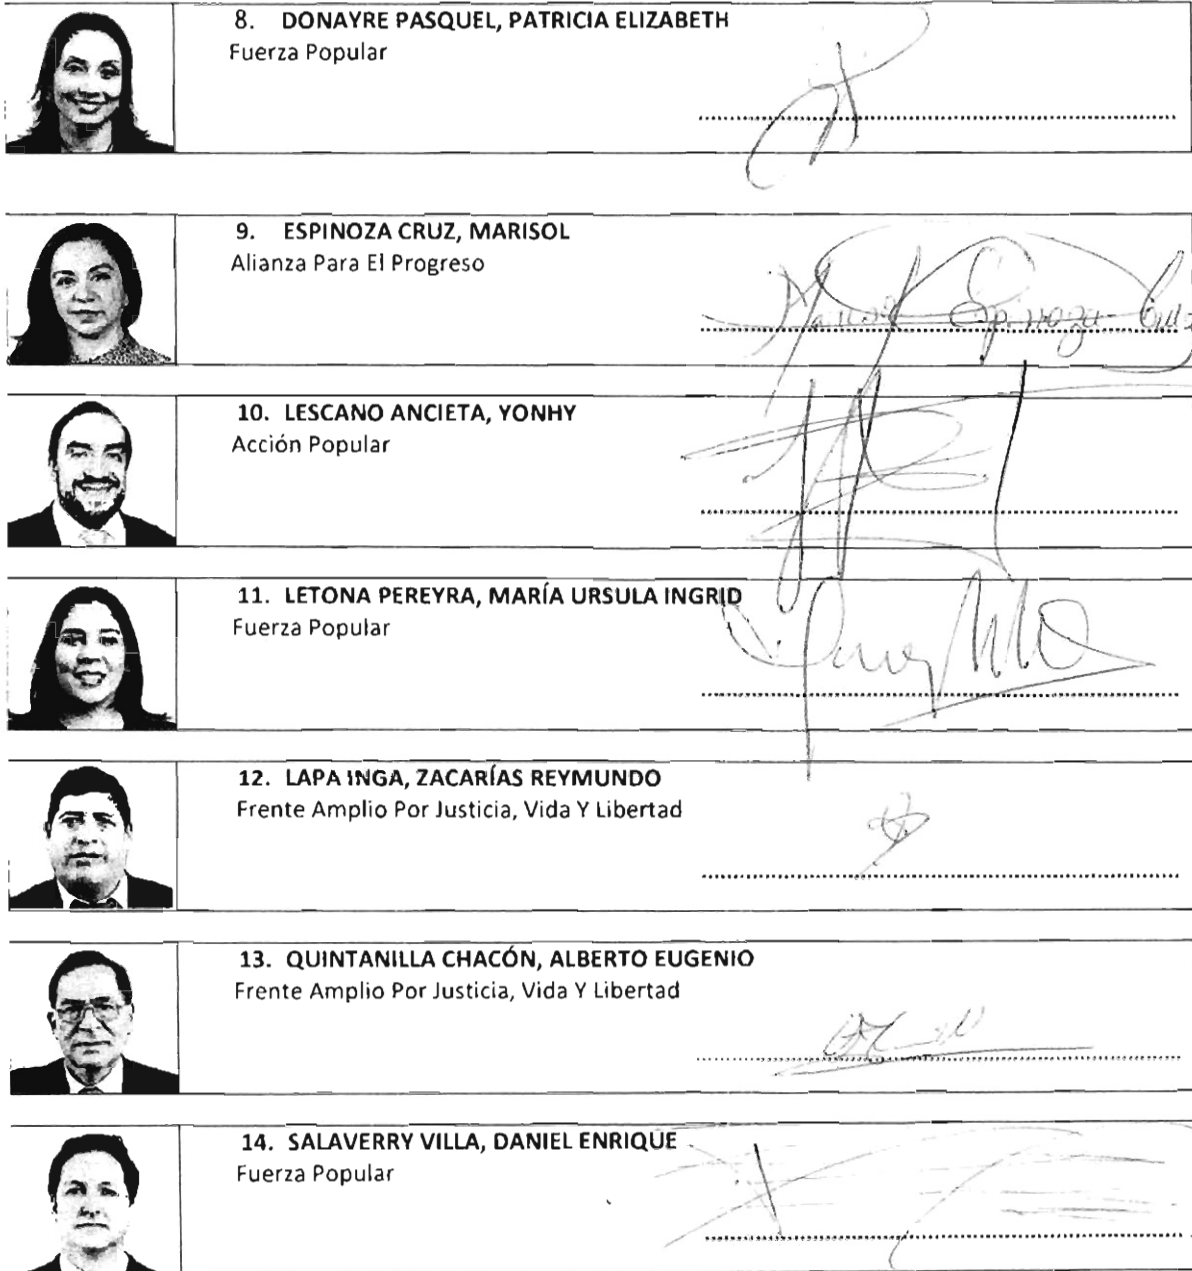 8. DONAYRE PASQUEL, PATRICIA ELIZABETH
Fuerza Popular
9. ESPINOZA CRUZ, MARISOL
Alianza Para El Progreso
Marisol Espinoza Cruz
10. LESCANO ANCIETA, YONHY
Acción Popular
11. LETONA PEREYRA, MARÍA URSULA INGRID
Fuerza Popular
12. LAPA INGA, ZACARÍAS REYMUNDO
Frente Amplio Por Justicia, Vida Y Libertad
13. QUINTANILLA CHACÓN, ALBERTO EUGENIO
Frente Amplio Por Justicia, Vida Y Libertad
14. SALAVERRY VILLA, DANIEL ENRIQUE
Fuerza Popular